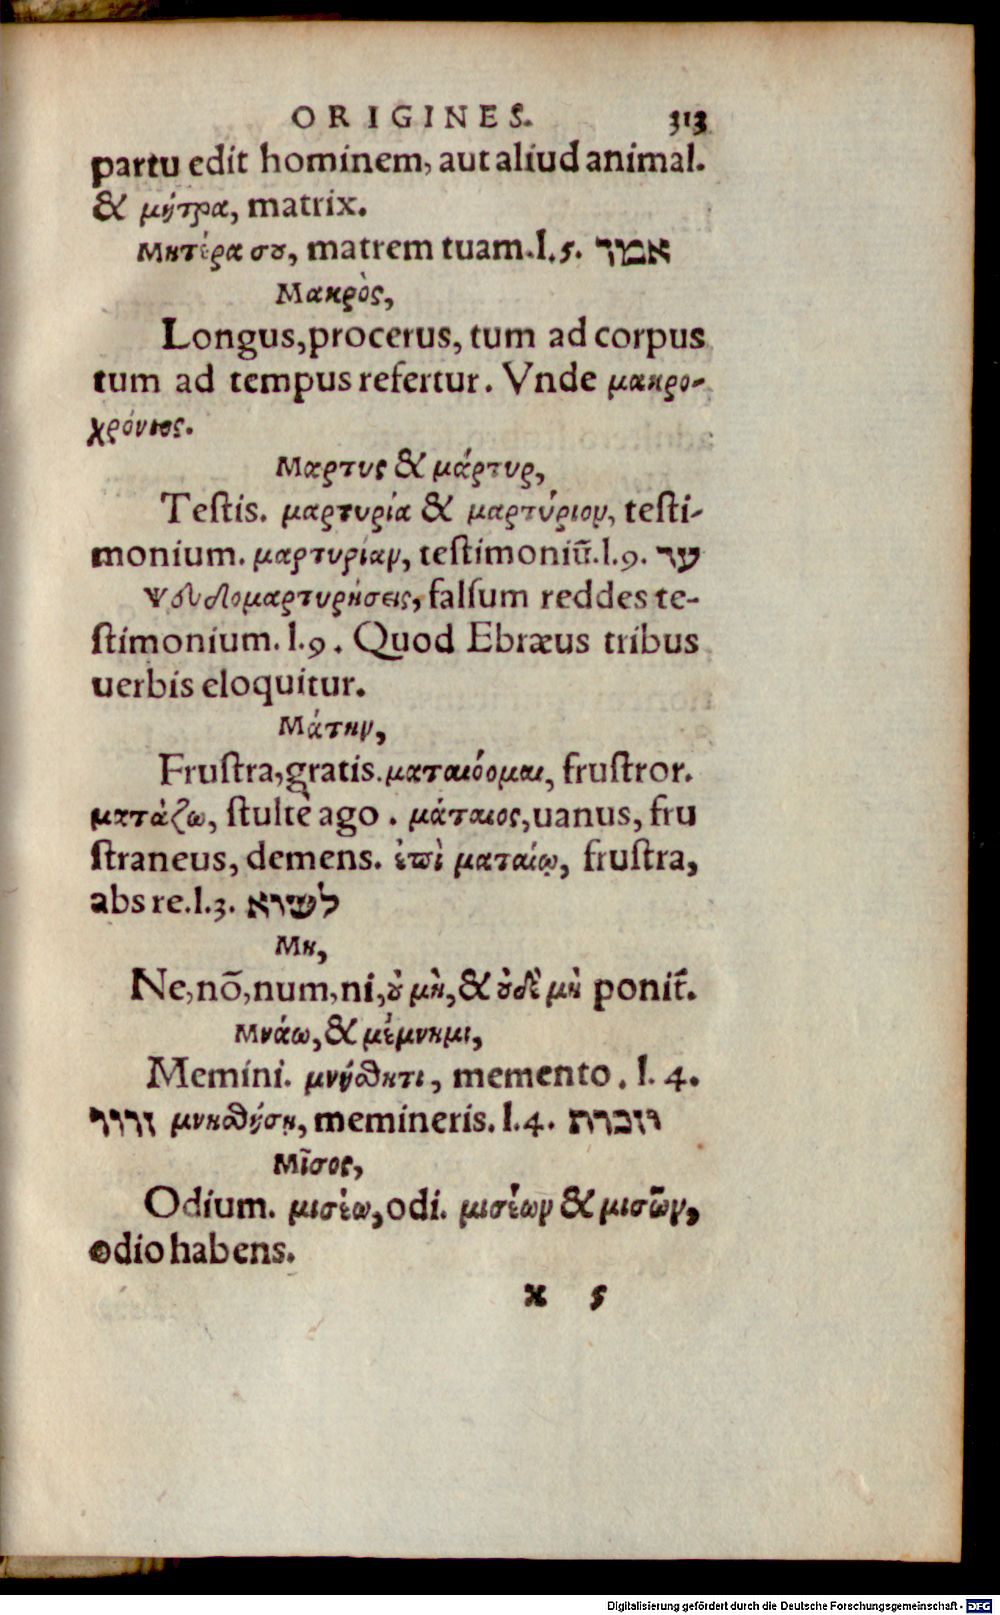 ORIGINES. 313
partu edit hominem, aut aliud animal.
& μήτρα, matrix.
Μητέρα σου, matrem tuam.l.5. אמך
Μακρὸς,
Longus, procerus, tum ad corpus
tum ad tempus refertur. Vnde μακρο-
χρόνιος.
Μαρτυς & μάρτυρ,
Testis. μαρτυρία & μαρτύριον, testi-
monium. μαρτυρίαν, testimoniũ.l.9. עד
Ψευδομαρτυρήσεις, falsum reddes te-
stimonium. l.9. Quod Ebræus tribus
uerbis eloquitur.
Μάτην,
Frustra, gratis. ματαιόομαι, frustror.
ματάζω, stultè ago. μάταιος, uanus, fru
straneus, demens. ἐπὶ ματαίῳ, frustra,
abs re.l.3. לשוא
Μη,
Ne, nõ, num, ni, οὐ μὴ, & οὐδὲ μὴ ponit̃.
Μνάω, & μέμνημι,
Memini. μνήσθητι, memento. l. 4.
זכור μνησθήσῃ, memineris. l.4. וזכרת
Μῖσος,
Odium. μισέω, odi. μισέων & μισῶν,
odio habens.
x 5
Digitalisierung gefördert durch die Deutsche Forschungsgemeinschaft - DFG